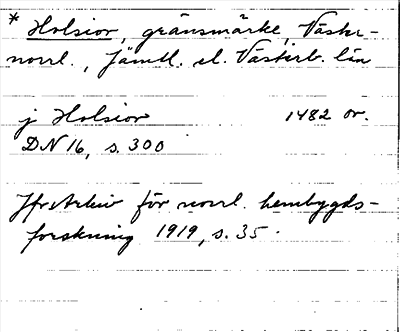 * Holsior, gränsmärke, Väster-
norrl., Jämtl. el. Västerb. län
j Holsior 1482 or.
DN 16, s. 300
Jfr Arkiv för norrl. hembygds-
forskning 1919, s. 35.